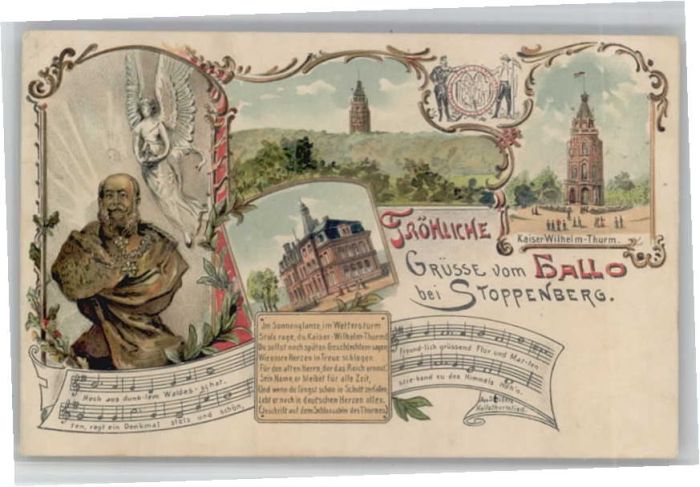 Kaiser-Wilhelm-Thurm.
FRÖHLICHE
GRÜSSE vom HALLO
bei STOPPENBERG.
Im Sonnenglanze, im Wettersturm
Stolz rage, du Kaiser-Wilhelm-Thurm!
Du sollst noch späten Geschlechtern sagen
Wie unsre Herzen in Treue schlagen
Für den alten Herrn, der das Reich erneut.
Sein Name, er bleibet für alle Zeit,
Und wenn du längst schon in Schutt zerfallen
Lebt er noch in deutschen Herzen allen.
(Inschrift auf dem Schlussstein des Thurmes.)
Hoch aus dunk-lem Waldes-schat-
ten, ragt ein Denkmal stolz und schön,
freund-lich grüssend Flur und Mat-ten
stre-bend zu des Himmels Höh'n.
Hallothurmlied.